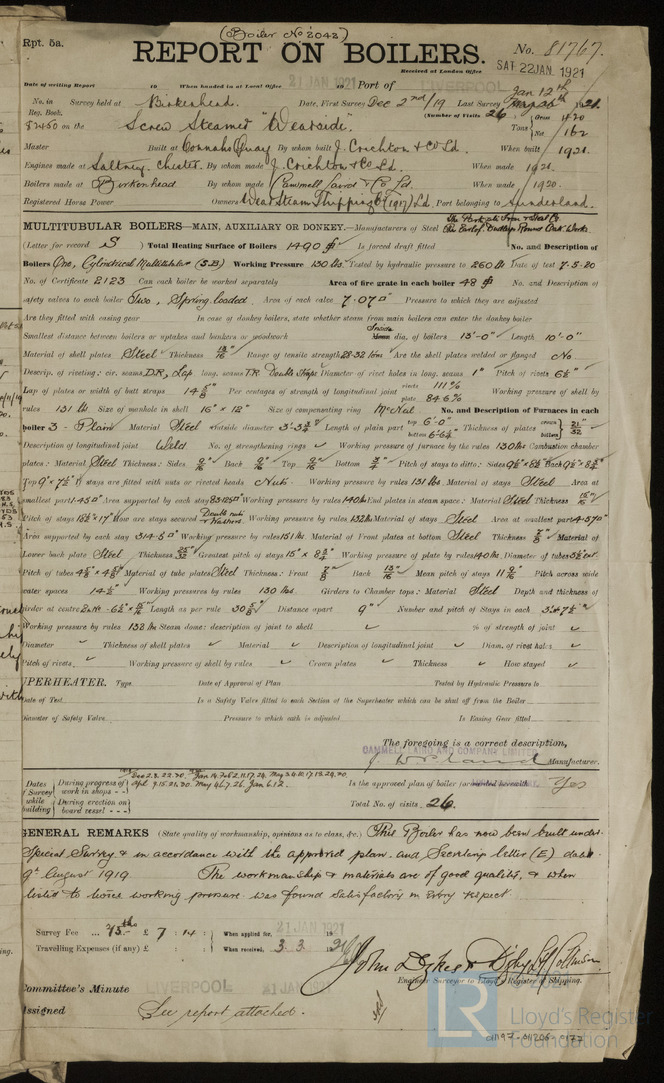 (Boiler No 2042)
Rpt. 5a.
REPORT ON BOILERS.
No. 81767.
Received at London Office SAT 22 JAN 1921
Date of writing Report 19 When handed in at Local Office 21 JAN 1921 Port of LIVERPOOL
No. in Reg. Book. Survey held at Birkenhead. Date, First Survey Dec 2nd/19 Last Survey Jan 12th 1921.
(Number of Visits 26)
82450 on the Screw Steamer "Wearside". Tons Gross 420 Net 162
Master Built at Connahs Quay By whom built J. Crichton & Co Ld. When built 1921.
Engines made at Saltney, Chester. By whom made J. Crichton & Co Ld. When made 1921.
Boilers made at Birkenhead By whom made Cammell Laird & Co Ld. When made 1920.
Registered Horse Power Owners Wear Steam Shipping Co (1917) Ld. Port belonging to Sunderland.
MULTITUBULAR BOILERS—MAIN, AUXILIARY OR DONKEY.—Manufacturers of Steel
(Letter for record S) Total Heating Surface of Boilers 1490 Is forced draft fitted No. and Description of
Boilers One, Cylindrical Multitubular (S.B) Working Pressure 130 lbs. Tested by hydraulic pressure to 260 lbs Date of test 7-5-20
No. of Certificate 2123 Can each boiler be worked separately Area of fire grate in each boiler 48 No. and Description of
safety valves to each boiler Two, Spring loaded. Area of each valve 7.07 Pressure to which they are adjusted
Are they fitted with easing gear In case of donkey boilers, state whether steam from main boilers can enter the donkey boiler
Smallest distance between boilers or uptakes and bunkers or woodwork Inside dia. of boilers 13'-0" Length 10'-0"
Material of shell plates Steel Thickness 13/16 Range of tensile strength 28-32 tons Are the shell plates welded or flanged No.
Descrip. of riveting: cir. seams D.R, Lap long. seams T.R. Double Straps Diameter of rivet holes in long. seams 1" Pitch of rivets 6 1/2"
Lap of plates or width of butt straps 14 5/8" Per centages of strength of longitudinal joint rivets 111% plate 84.6% Working pressure of shell by
rules 131 lbs Size of manhole in shell 16" × 12" Size of compensating ring McNeil No. and Description of Furnaces in each
boiler 3 - Plain Material Steel Outside diameter 3'-3 3/4" Length of plain part top 6'-0" bottom 6'-6 3/4" Thickness of plates crown bottom 21/32
Description of longitudinal joint Weld No. of strengthening rings Working pressure of furnace by the rules 130 lbs Combustion chamber
plates: Material Steel Thickness: Sides 9/16" Back 9/16" Top 9/16" Bottom 3/4" Pitch of stays to ditto: Sides 9 1/2" × 8 1/2" Back 9 1/2" × 8 3/4"
Top 9" × 7 1/2" If stays are fitted with nuts or riveted heads Nuts. Working pressure by rules 131 lbs. Material of stays Steel Area at
smallest part 1.45 Area supported by each stay 83.125 Working pressure by rules 140 lbs End plates in steam space: Material Steel Thickness 15/16"
Pitch of stays 18 1/2" × 17" How are stays secured Double nuts & Washers Working pressure by rules 132 lbs Material of stays Steel Area at smallest part 4.57
Area supported by each stay 314.5 Working pressure by rules 151 lbs Material of Front plates at bottom Steel Thickness 7/8" Material of
Lower back plate Steel Thickness 25/32" Greatest pitch of stays 15" × 8 3/4" Working pressure of plate by rules 140 lbs. Diameter of tubes 3 1/2" ext.
Pitch of tubes 4 3/4" × 4 5/8" Material of tube plates Steel Thickness: Front 7/8" Back 13/16" Mean pitch of stays 11 9/16" Pitch across wide
water spaces 14 1/2" Working pressures by rules 130 lbs. Girders to Chamber tops: Material Steel Depth and thickness of
girder at centre Length as per rule 30 5/8" Distance apart 9" Number and pitch of Stays in each 3 @ 7 1/2"
Working pressure by rules 132 lbs Steam dome: description of joint to shell % of strength of joint
Diameter Thickness of shell plates Material Description of longitudinal joint Diam. of rivet holes
Pitch of rivets Working pressure of shell by rules Crown plates Thickness How stayed
UPERHEATER. Type Date of Approval of Plan Tested by Hydraulic Pressure to
Date of Test Is a Safety Valve fitted to each Section of the Superheater which can be shut off from the Boiler
Diameter of Safety Valve Pressure to which each is adjusted Is Easing Gear fitted
The foregoing is a correct description,
CAMMELL LAIRD AND COMPANY LIMITED
Manufacturer.
Dates of Survey while building During progress of work in shops - - During erection on board vessel - - -
Is the approved plan of boiler forwarded herewith Yes
Total No. of visits 26
GENERAL REMARKS (State quality of workmanship, opinions as to class, &c.) This Boiler has now been built under
Special Survey & in accordance with the approved plan and Secretary's letter (E) dated
9th August 1919. The workmanship & materials are of good quality, & when
tested to twice working pressure was found satisfactory in every respect.
Survey Fee ... £ 7 : 14 : When applied for, 21 JAN 1921
Travelling Expenses (if any) £ : : When received, 3.3.1921
John Dykes
Engineer Surveyor to Lloyd's Register of Shipping.
Committee's Minute LIVERPOOL 21 JAN 1921
Assigned See report attached.
LR Lloyd's Register Foundation
011197-011205-0177